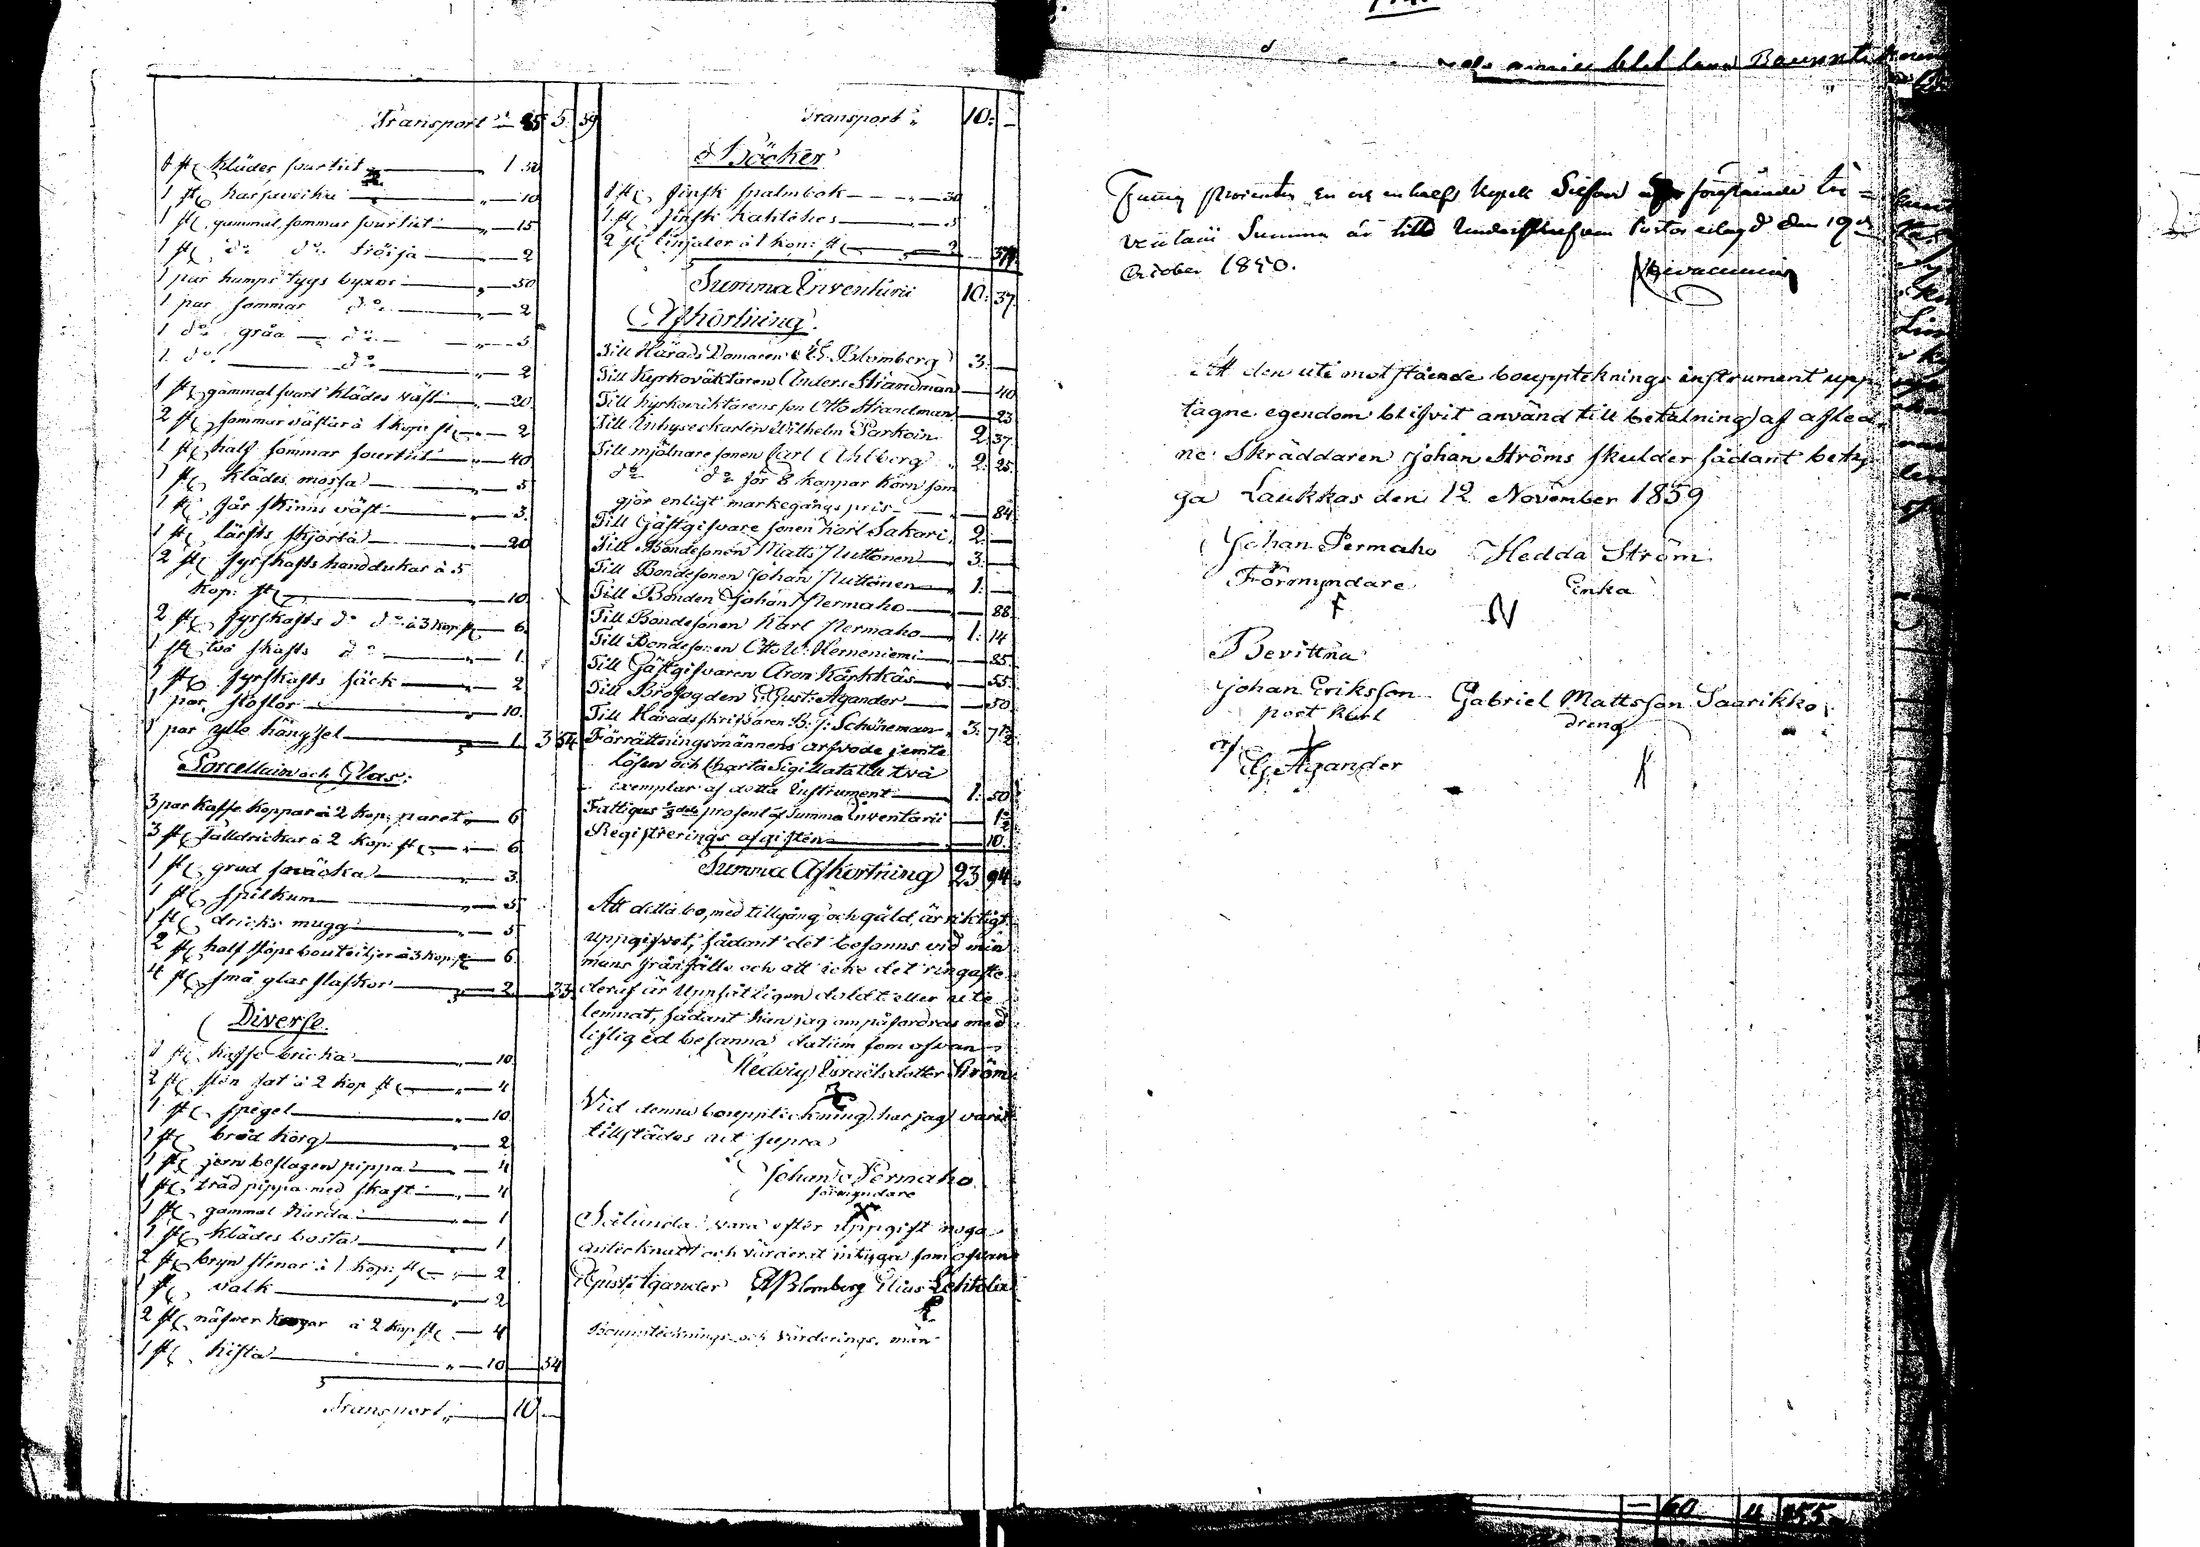 Transport 85 5. 59
1 st. klädes surtut 1 50
1 st. 10
1 st. gammal sommar surtut 15
1 st. do do tröija 2
1 par hamps tygs byxor 50
1 par sommar do 2
1 do gråa do 5
1 do do 2
1 st. gammal svart klädes väst 20
2 st. sommar västar à 1 kop: st. 2
1 st. half sommar sourtut 40
1 st. klädes mössa 5
1 st. får skinns väst 3.
1 st. lärfts skjorta 20
2 st. fyrskafts handdukar à 5
kop: st. 10
2 st. fyrskafts do do à 3 kop st. 6.
1 st. två skafts do 1.
1 st. fyrskafts säck 2
1 par stöflor 10.
1 par ylle hängsel 1 3 54
Porcellain och Glas:
3 par kaffe koppar à 2 kop: paret 6
3 st. talldrickar à 2 kop: st. 6
1 st. 3.
1 st. spilkum 5
1 st. dricks mugg 5
2 st. half stops bouteiljer à 3 kop. st. 6.
4 st. små glas flaskor 2 33
Diverse.
1 st. kaffe bricka 10
2 st. sten fat à 2 kop st. 4
1 st. spegel 10
1 st. bröd korg 2
1 st. jern beslagen pippa 4
1 st. träd pippa med skaft 4
1 st. gammal karda 1
1 st. klädes bosta 1
2 st. bryn stenar à 1 kop: st. 2
1 st. valk 2
2 st. näfver à 2 kop st. 4
1 st. kista 10 54
Transport 10
Transport 10. —
Böcker
1 st. finsk psalmbok 30
1 st. finsk kathekes 5
2 st. linjaler à 1 kop: st. 2 37.
Summa Inventarii 10. 37.
Afkortning.
Till Härads Domaren Blomberg 3. —
Till Kyrkoväktaren Anders Strandman 40
Till kyrkoväktarens son Otto Strandman 23
Till Inhyseskarlen Wilhelm Parkoin 2. 37
Till mjölnare sonen Carl Ahlberg 2. 25
do do för 8 kappar korn som
gjör enligt markegångs pris 84
Till Gästgifvare sonen Karl Sakari 2. —
Till Bondesonen Matts Nuttonen 3. —
Till Bondesonen Johan Nuttonen 1. —
Till Bonden Johan Permaho 88
Till Bondesonen Karl Permaho 1. 14
Till Bondesonen Otto W: Horneniemi 85.
Till Gästgifvaren Aron Käpkkäs 55
Till Brofogden Gust: Agander 50
Till Häradsskrifvaren B. J: Schöneman 3. 71½
Förrättningsmännens arfvode jemte
lösen och Charta Sigillata till två
exemplar af detta Instrument 1. 50
Fattigas procent af Summa Inventarii 1½
Registrerings afgiften 10.
Summa Afkortning 23 94.
Att detta bo, med tillgång och gäld, är riktigt
uppgifvet, sådant det befanns vid min
mans frånfälle och att icke det ringaste
deraf är Uppsåtligen doldt eller ute
lemnat, sådant kan jag om påfordras med
liflig ed besanna datum som ofvan
Hedvig Israelsdotter Ström
Vid denna bouppteckning har jag varit
tillstädes ut supra
Johan Permaho
förmyndare
Sålunda vara efter uppgift noga
antecknadt och värderat intyga som ofvan
Gust: Agander Blomberg Elias Lehtola
Boupptecknings och Värderings. män
En och en half kopek Silfver förestående In-
ventarii Summa är till den 19de
October 1850.
Att den uti motstående bouppteknings instrument upp
tagne egendom blifvit använd till betalning af afled
ne Skräddaren Johan Ströms skulder sådant bety
ga Laukkas den 12 November 1859
Johan Permaho Hedda Ström
Förmyndare Enka
Bevittna
Johan Eriksson Gabriel Mattsson Saarikko
post karl dreng
af
G. Agander
60 4 155